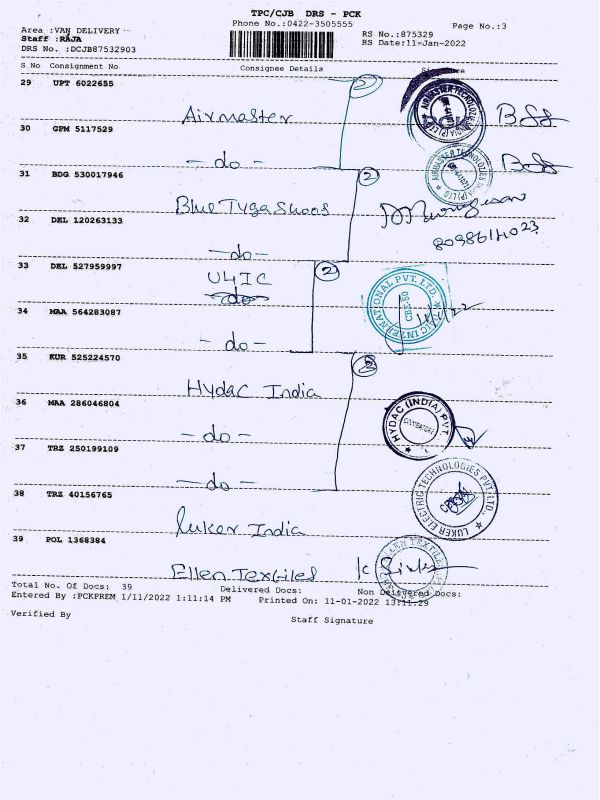 TPC/CJB DRS - PCK
Phone No.:0422-3505555
Page No.:3
Area :VAN DELIVERY
Staff :RAJA
DRS No. :DCJB87532903
RS No.:875329
RS Date:11-Jan-2022
S No Consignment No Consignee Details
29 UPT 6022655 Airmaster 2
30 GPM 5117529 - do -
31 BDG 530017946 2
32 DEL 120263133 - do -
33 DEL 527959997 2
34 MAA 564283087 - do -
35 KUR 525224570 Hydac India
36 MAA 286046804 - do -
HYDAC (INDIA) PVT
COIMBATORE
37 TRZ 250199109 - do -
38 TRZ 40156765 Luker India
LUKER ELECTRIC TECHNOLOGIES PVT. LTD.
39 POL 1368384 Ellen Textiles
Total No. Of Docs: 39 Delivered Docs: Non Delivered Docs:
Entered By :PCKPREM 1/11/2022 1:11:14 PM Printed On: 11-01-2022 13:11:29
Verified By Staff Signature